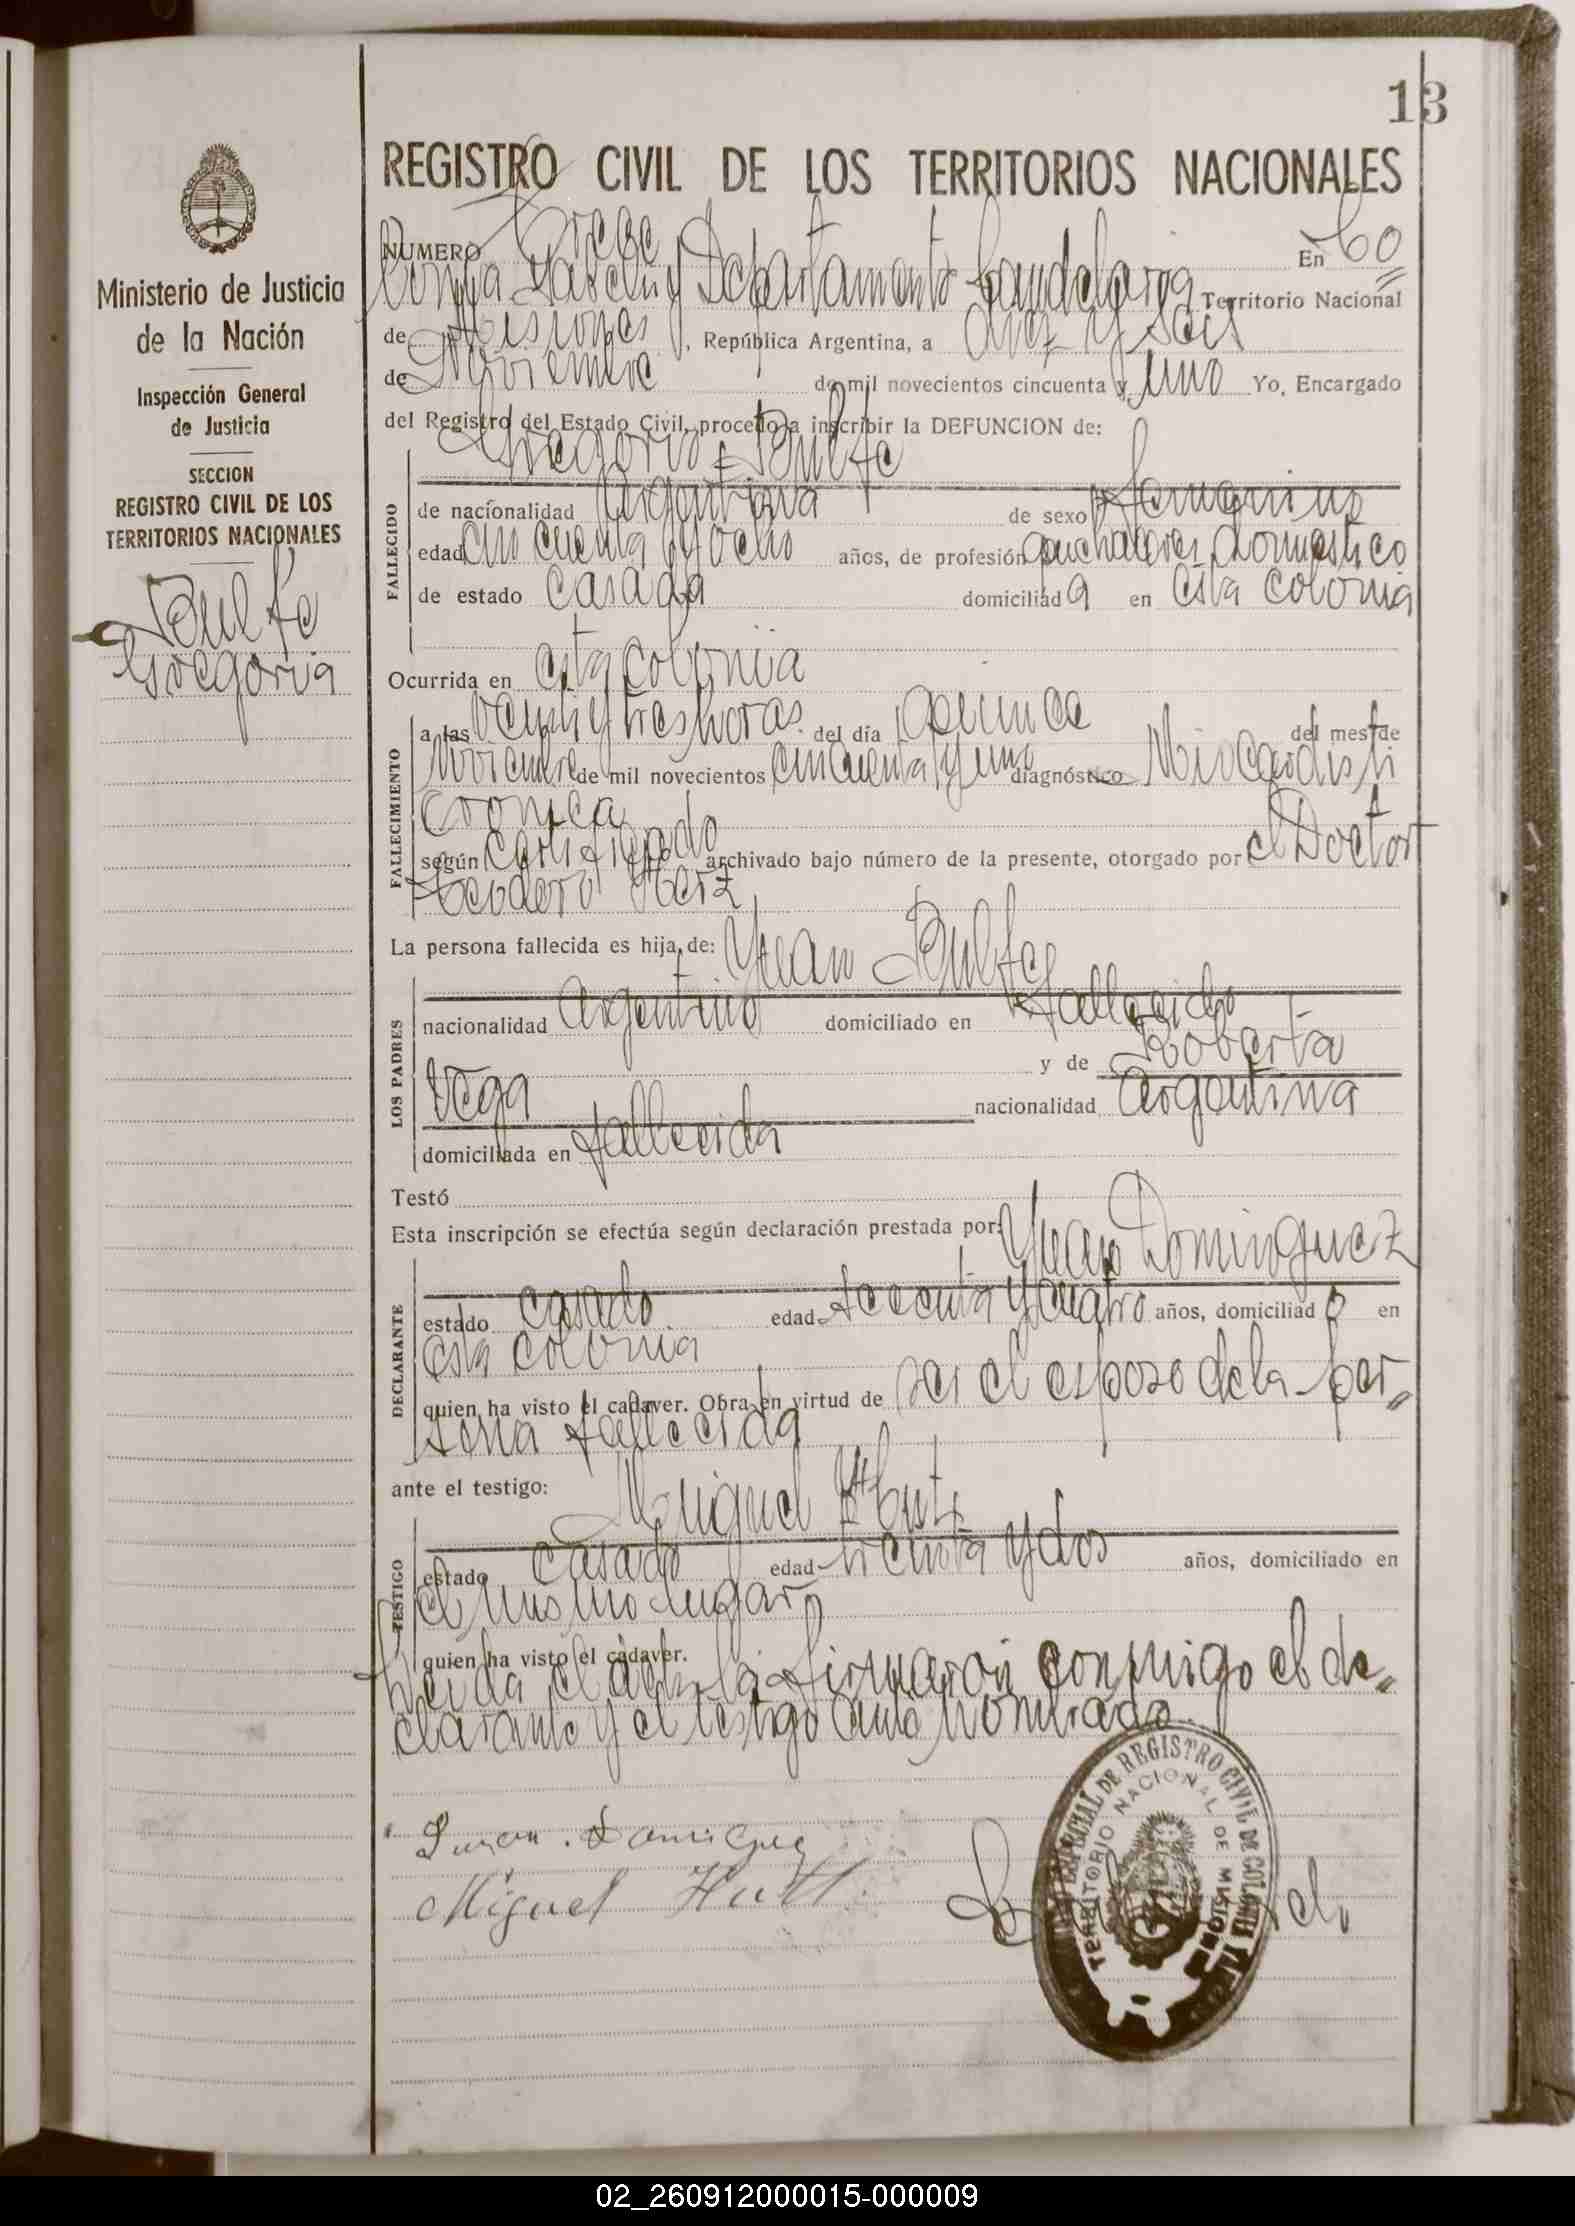 13
REGISTRO CIVIL DE LOS TERRITORIOS NACIONALES
Ministerio de Justicia
de la Nación
Inspección General
de Justicia
SECCION
REGISTRO CIVIL DE LOS
TERRITORIOS NACIONALES
Bulfe
Gregoria
NUMERO Trece En Co
lonia Departamento Candelaria Territorio Nacional
de Misiones, República Argentina, a diez y seis
de Noviembre de mil novecientos cincuenta y uno Yo, Encargado
del Registro del Estado Civil, procedo a inscribir la DEFUNCION de:
Gregoria Bulfe
FALLECIDO
de nacionalidad argentina de sexo femenino
edad cincuenta y ocho años, de profesión quehaceres domestico
de estado casada domiciliada en esta colonia
Ocurrida en esta colonia
FALLECIMIENTO
a las veinti y tres horas del día quince del mes de
Noviembre de mil novecientos cincuenta y uno diagnóstico Miocardisti
cronica
según certificado archivado bajo número de la presente, otorgado por el Doctor
Teodoro Herz
La persona fallecida es hija de: Yuan Bulfe
LOS PADRES
nacionalidad argentino domiciliado en fallecido
y de Roberta
Vega nacionalidad argentina
domiciliada en fallecida
Testó
Esta inscripción se efectúa según declaración prestada por: Yuan Dominguez
DECLARANTE
estado casado edad secenta y cuatro años, domiciliado en
esta colonia
quien ha visto el cadaver. Obra en virtud de ser el esposo de la per=
sona fallecida
ante el testigo: Miguel
TESTIGO
estado casado edad trienta y dos años, domiciliado en
el mismo lugar
quien ha visto el cadaver.
Leida el acta la firmaron conmigo el de=
clarante y el testigo ante nombrado.
Miguel
REGISTRO CIVIL DE
TERRITORIO NACIONAL DE MISIONES
02_260912000015-000009